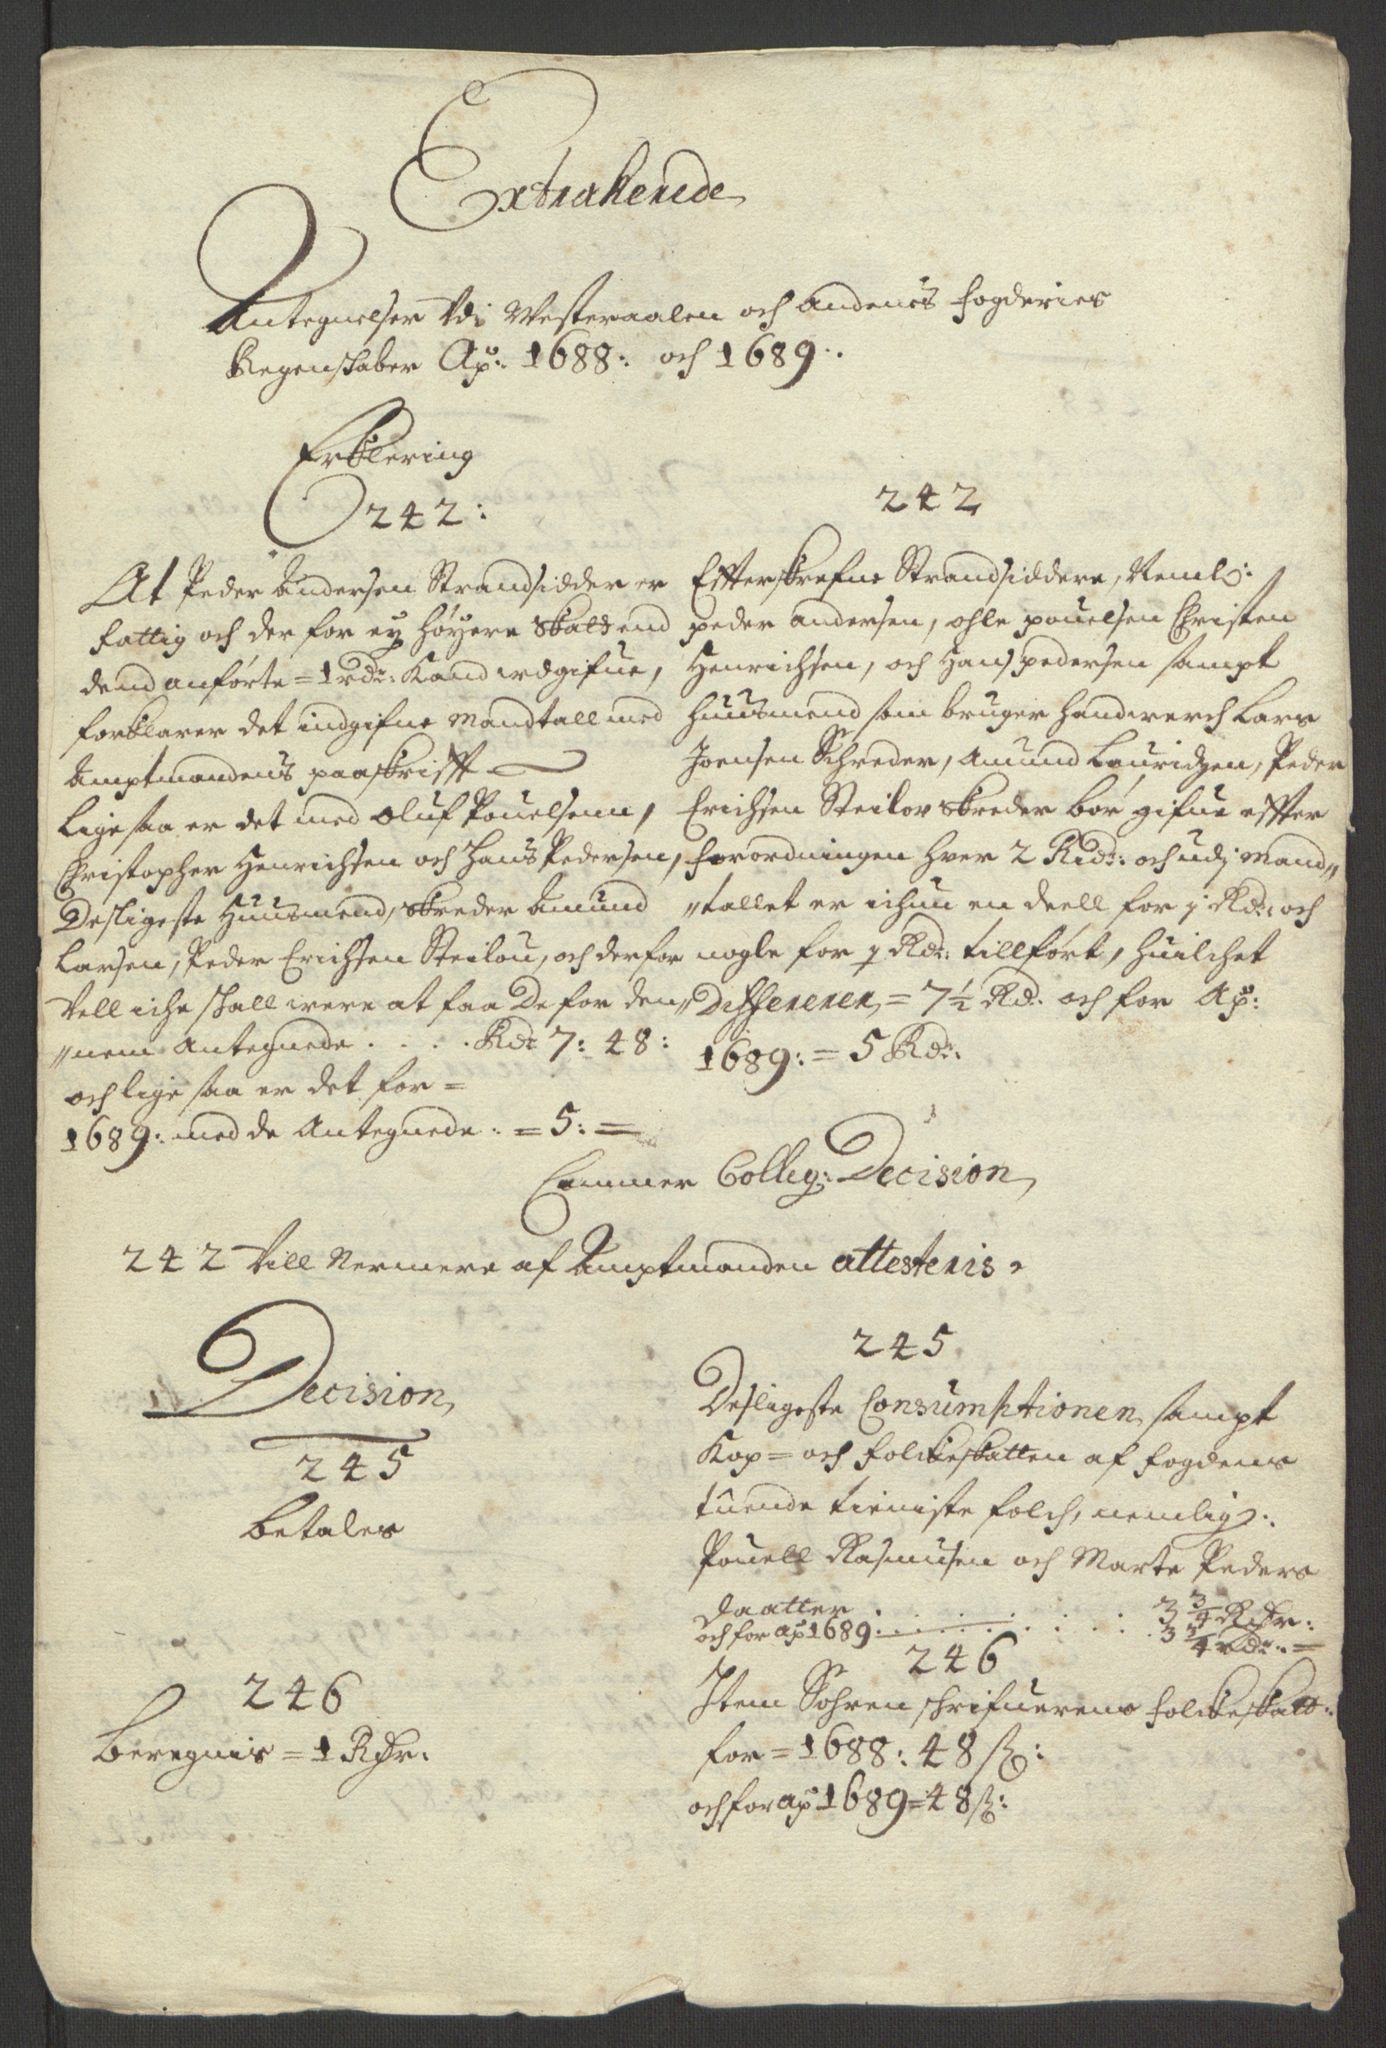 Extraherede
Antegnelser Vdi Westeraalen och andenes fogderies
Regenskaber Ao: 1688: och 1689:.
Erklering
242:
At Peder Andersen Strandsidder er
fattig och der for ey høyere skatt end
dend anførte = 1 rdr: Kand wdgifue,
forklarer det indgifne Mandtall med
Amptmandens paaskrifft
Lige saa er det med Oluf Pouelsenn,
Christopher Henrichsen och Hans Pedersen,
Desligeste Huusmend, skreder Amund
Larsen, Peder Erichsen Steilou, och derfor
Vell iche skall were at faa De for den„
„nem Antegnede . . . . Rdr 7: 48:
och lige saa er det for =
1689: med de Antegnede : = 5: =
242
Effterskrefne Strandsiddere, Neml:
peder andersen, ohle pouelsen Christen
Henrichsen, och Hans pedersen sampt
huusmend som bruger handwerch Lars
Joensen Schreder, Amund Lauridzen, Peder
Erichsen Steilov skreder bør gifue effter
forordningen hver 2 Ridr: och udj Mand„
„tallet er ichun en deell for j Rdr: och
nogle for 1/2 Rdr: tillført, huilchet
Differerer, = 7½ Rd: och for Ao:
1689: = 5 Rdr:
Cammer Colleg: Decision
242 Vill Nermere af Amptmanden attesteris.
Decision
245
betales
245
Desligeste Consumptionen sampt
Kop= och folckeskatten af fogdens
tuende tieniste folch, nemlig:
Pouell Rasmusen och Marte Peders
daatter . . . . . . . 3 3/4 Rdr:
och for ao 1689: . . . . . . . 3 3/4 rdr: =
246
beregnis = 1 Rdr:
246
Item Sohren schrifuerens folckeskatt:
for = 1688: 48 ß:
och for ao 1689 = 48 ß: